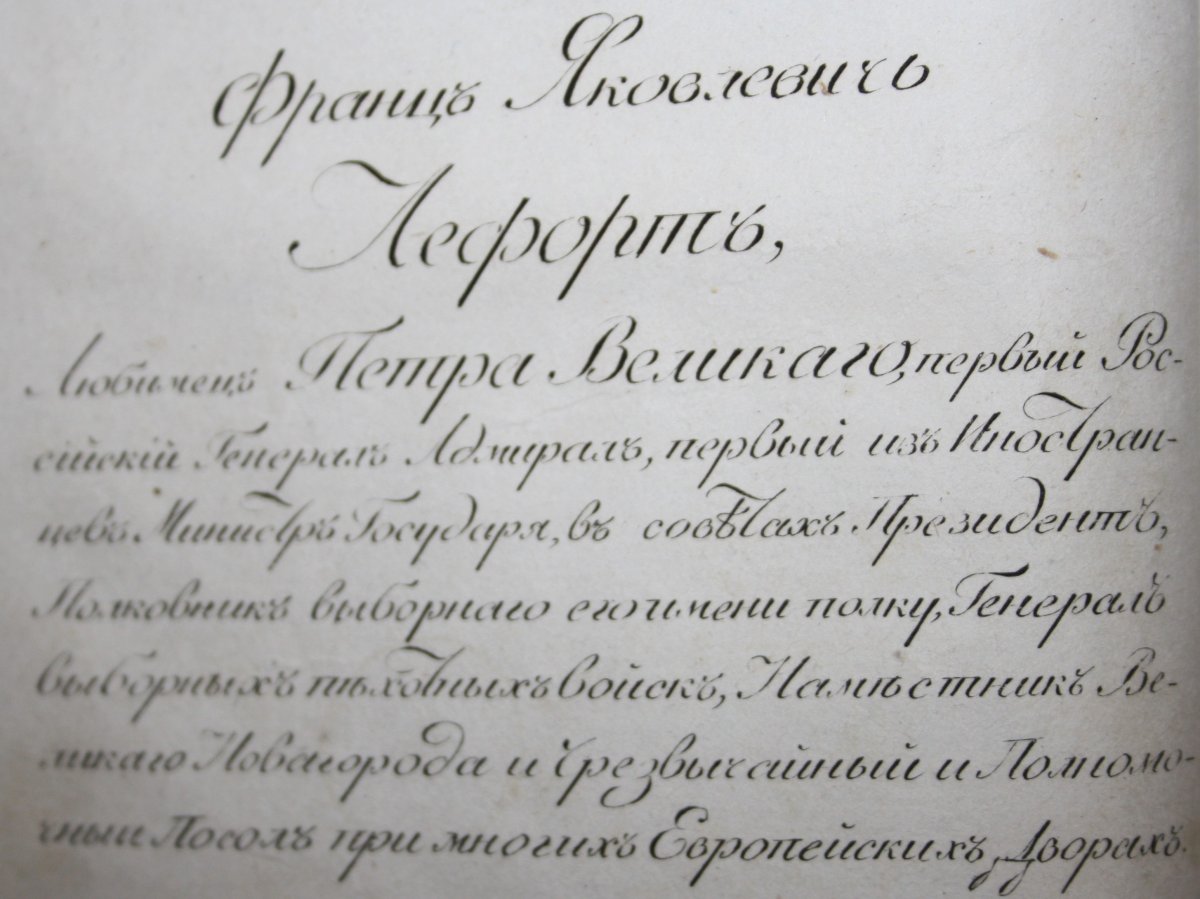 Францъ Яковлевичь
Лефортъ,
Любимецъ Петра Великаго, первый Рос-
сійскій Генералъ Адмиралъ, первый изъ Иностран-
цевъ Министръ Государя, въ совѣтахъ Президентъ,
Полковникъ выборнаго его имени полку, Генералъ
выборныхъ пѣхотныхъ войскъ, Намѣстникъ Ве-
ликаго Новагорода и Чрезвычайный и Полномо-
чный Посолъ при многихъ Европейскихъ Дворахъ.